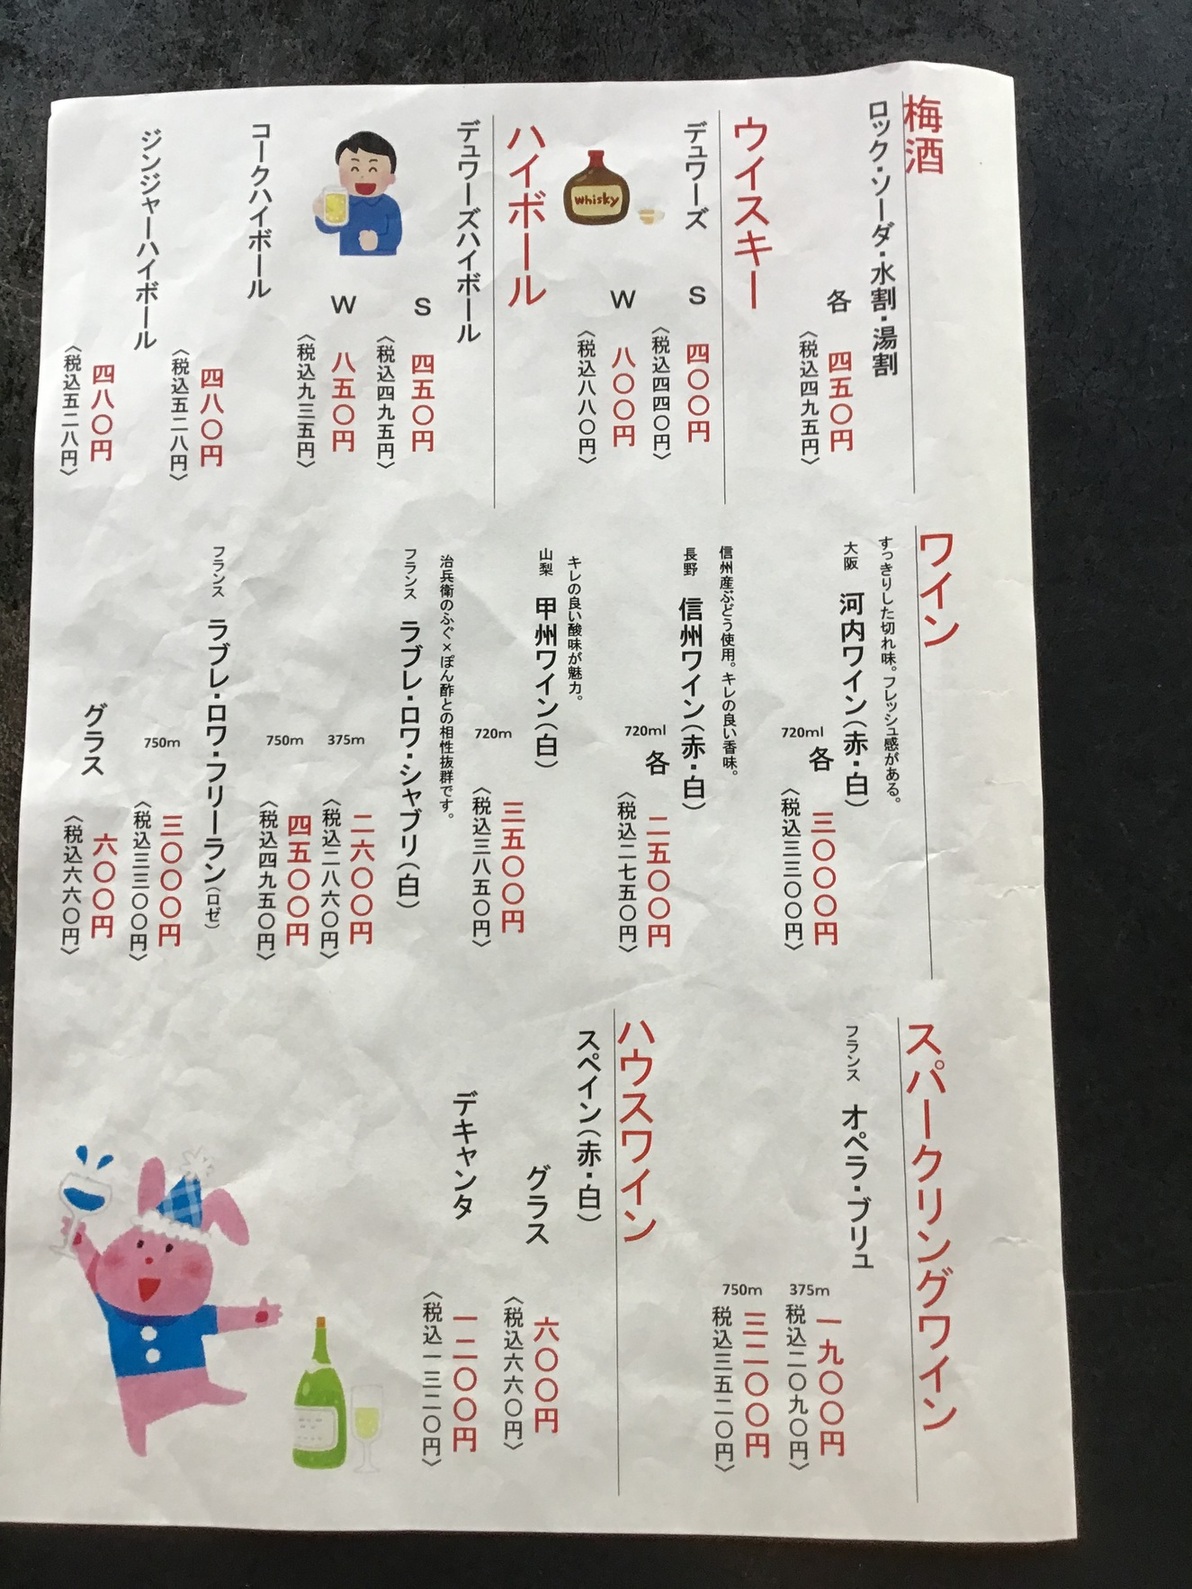 梅酒
ロック・ソーダ・水割・湯割
各 四五〇円
〈税込四九五円〉
ウイスキー
デュワーズ
S 四〇〇円
〈税込四四〇円〉
W 八〇〇円
〈税込八八〇円〉
whisky
ハイボール
デュワーズハイボール
S 四五〇円
〈税込四九五円〉
W 八五〇円
〈税込九三五円〉
コークハイボール
四八〇円
〈税込五二八円〉
ジンジャーハイボール
四八〇円
〈税込五二八円〉
ワイン
すっきりした切れ味。フレッシュ感がある。
大阪 河内ワイン(赤・白)
720ml 各 三〇〇〇円
〈税込三三〇〇円〉
信州産ぶどう使用。キレの良い香味。
長野 信州ワイン(赤・白)
720ml 各 二五〇〇円
〈税込二七五〇円〉
キレの良い酸味が魅力。
山梨 甲州ワイン(白)
720m 三五〇〇円
〈税込三八五〇円〉
治兵衛のふぐ×ぽん酢との相性抜群です。
フランス ラブレ・ロワ・シャブリ(白)
375m 二六〇〇円
〈税込二八六〇円〉
750m 四五〇〇円
〈税込四九五〇円〉
フランス ラブレ・ロワ・フリーラン(ロゼ)
750m 三〇〇〇円
〈税込三三〇〇円〉
グラス 六〇〇円
〈税込六六〇円〉
スパークリングワイン
フランス オペラ・ブリュ
375m 一九〇〇円
〈税込二〇九〇円〉
750m 三二〇〇円
〈税込三五二〇円〉
ハウスワイン
スペイン(赤・白)
グラス 六〇〇円
〈税込六六〇円〉
デキャンタ 一二〇〇円
〈税込一三二〇円〉